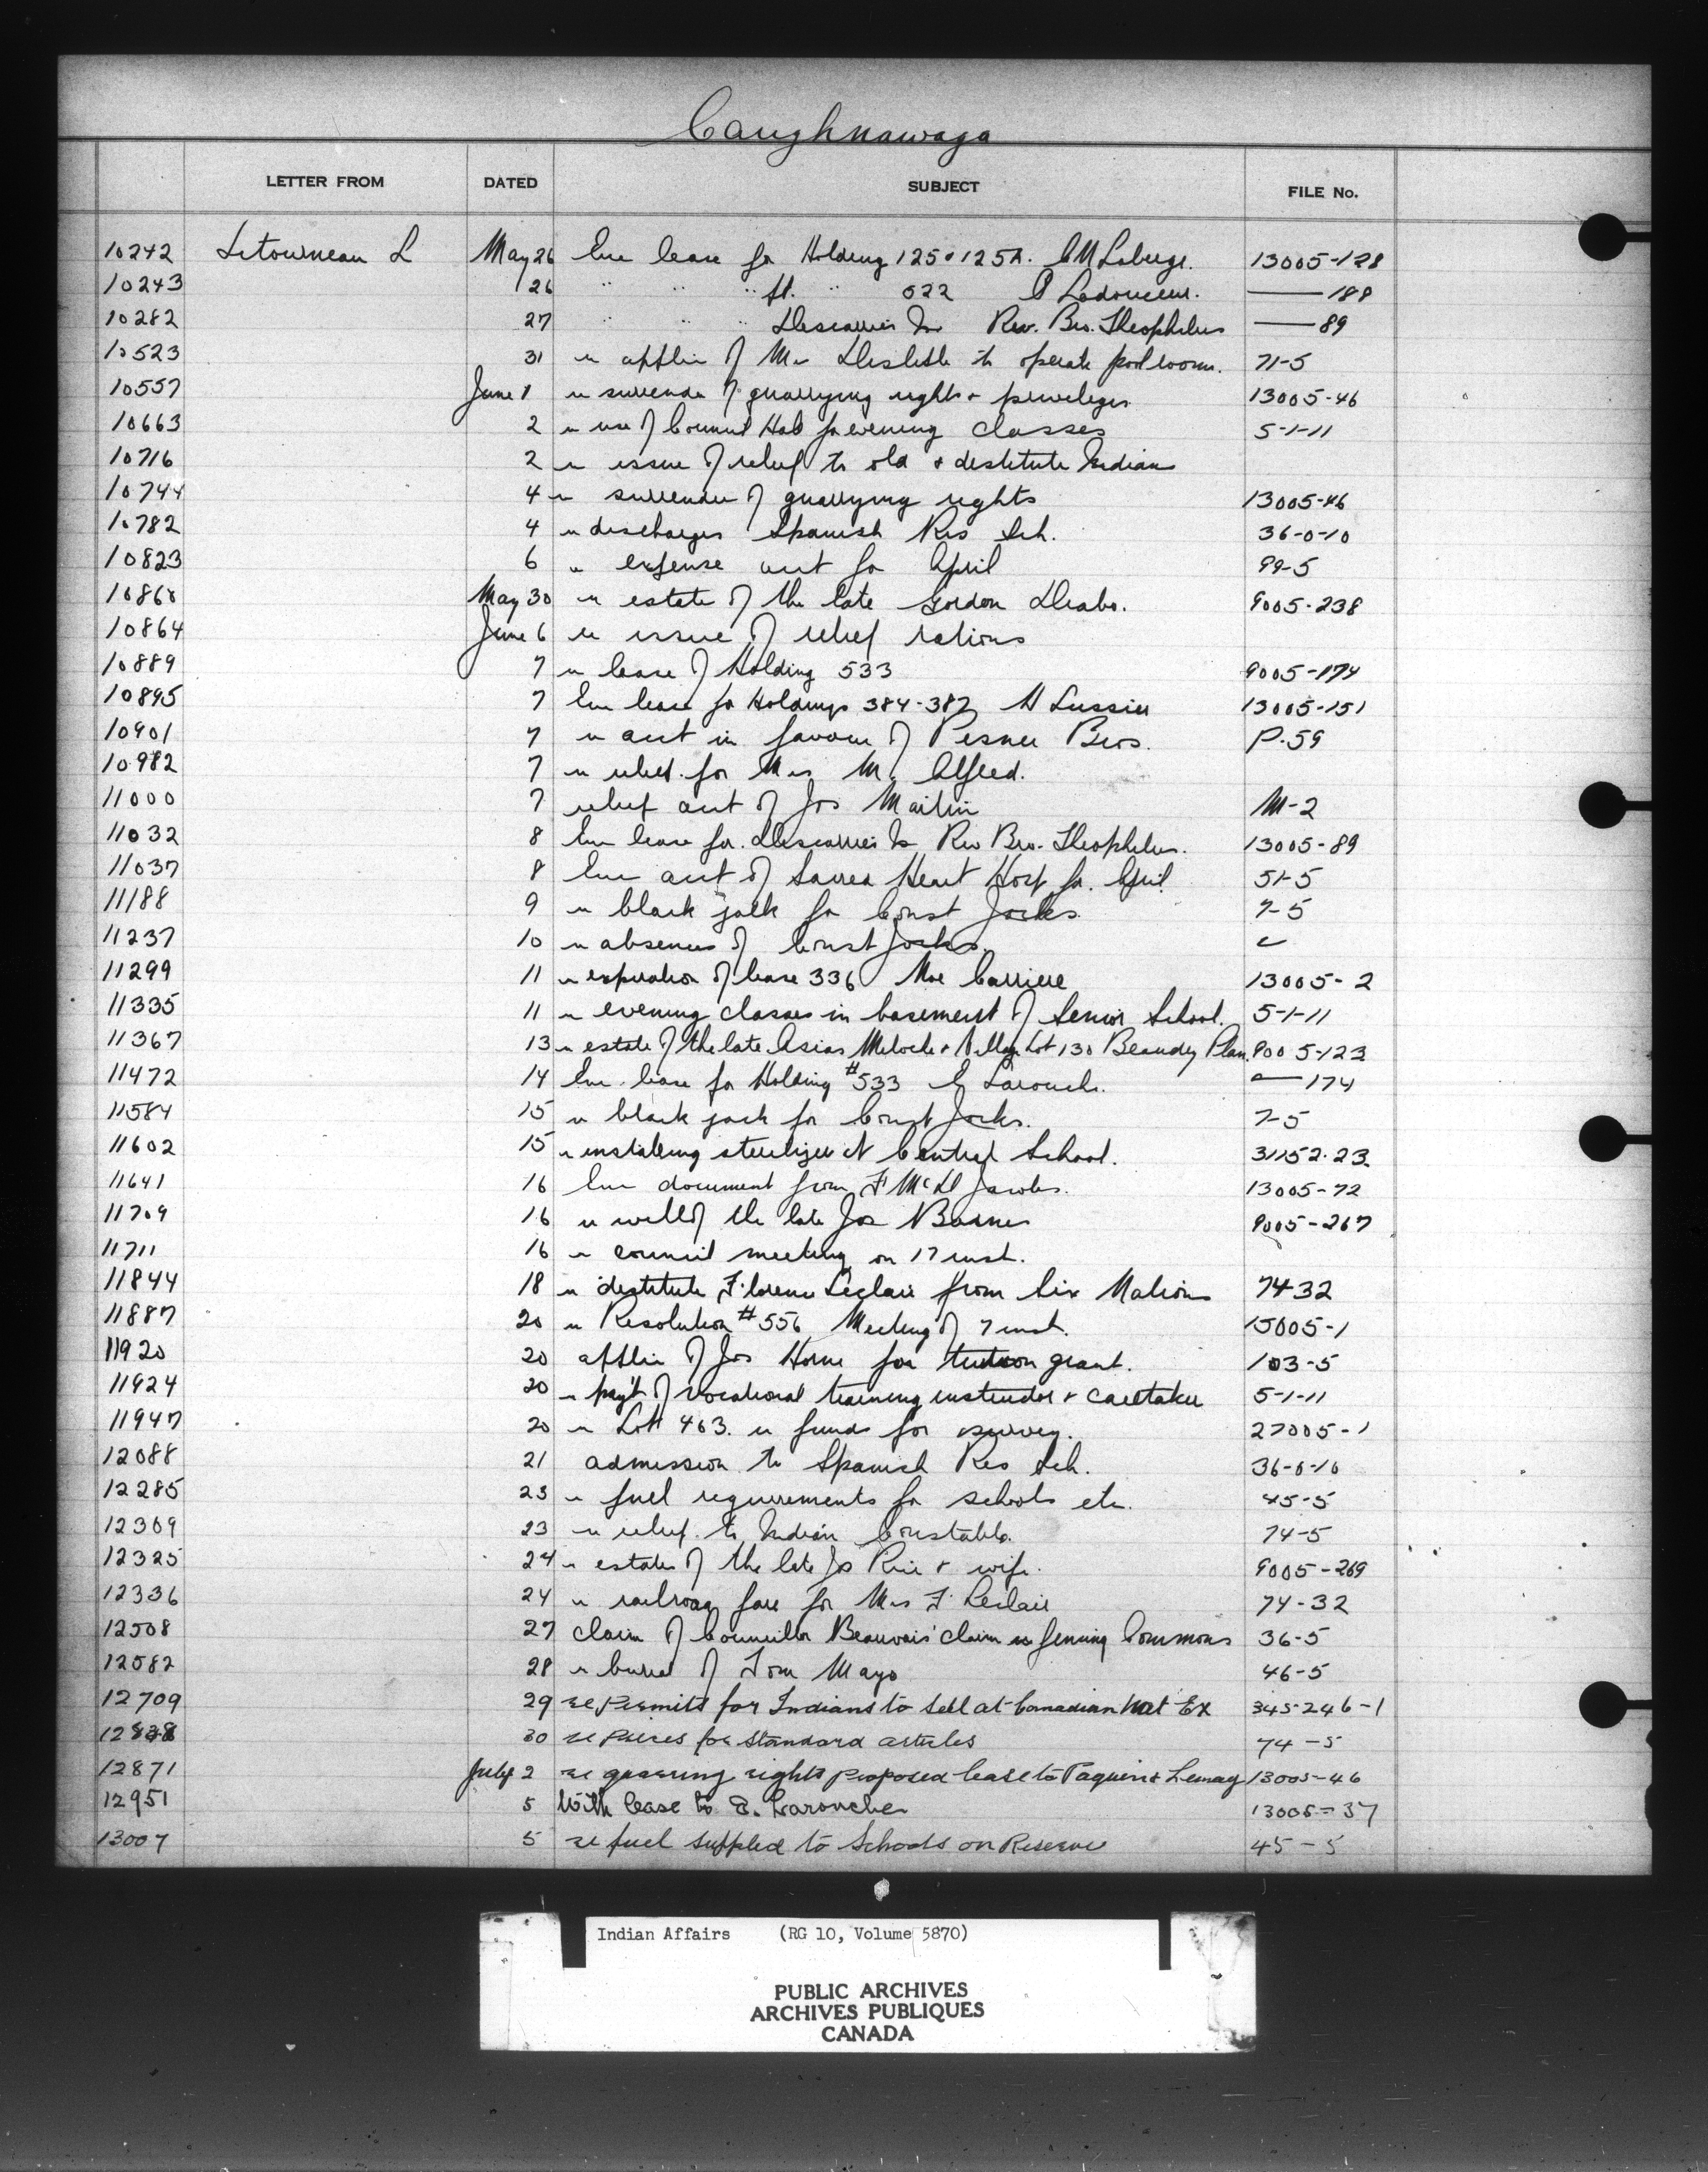 Caughnawaga
LETTER FROM DATED SUBJECT FILE No.
10242 Letourneau L May 26 Enc lease for Holding 125 & 125A. Laberge. 13005-128
10243 26 " " " " 522 Ladouceur. —— 188
10282 27 " " " Descarries Is Rev. Bro. Theophilus —— 89
10523 31 re applin of Mr Delisle to operate pool room. 71-5
10557 June 1 re surrender of quarrying rights & privileges 13005-46
10663 2 re use of Council Hall for evening classes 5-1-11
10716 2 re issue of relief to old & destitute Indians
10744 4 re surrender of quarrying rights 13005-46
10782 4 re discharges Spanish Res Sch. 36-0-10
10823 6 re expense acct for April 99-5
1086 May 30 re estate of the late Gordon Diabo. 9005-238
10864 June 6 re issue of relief rations
10889 7 re lease of Holding 533 9005-174
10895 7 Enc lease for Holdings 384-387 Lussier 13005-151
10901 7 re acct in favour of Pesner Bros. P-59
10982 7 re relief for Mrs M. Alfred.
11000 7 relief acct of Jos Martin M-2
11032 8 Enc lease for Descarries Is Rev Bro. Theophilus. 13005-89
11037 8 Enc acct of Sacred Heart Hosp for April 51-5
11188 9 re black jack for Const Jocks. 7-5
11237 10 re absences of Const Jocks.
11299 11 re expiration of lease 336 Carriere 13005-2
11335 11 re evening classes in basement of Senior School. 5-1-11
11367 13 re estate of the late Asias Meloche & Village Lot 130 Beaudry Plan. 9005-123
11472 14 Enc lease for Holding #533 Larouche. —— 174
11584 15 re black jack for Const Jocks. 7-5
11602 15 re installing sterilizer at Central School. 31152-23
11641 16 Enc document from F McD Jacobs. 13005-72
11709 16 re will of the late Jos Barnes 9005-267
11711 16 re council meeting on 17 inst.
11844 18 re destitute Florence Leclair from Six Nations 74-32
11887 20 re Resolution #556 Meeting of 7 inst. 15005-1
11920 20 applin of Jos Horne for tuition grant. 103-5
11924 20 re pay't of vocational training instructor & caretaker 5-1-11
11947 20 re Lot 463. re funds for survey. 27005-1
12088 21 admission to Spanish Res Sch. 36-0-10
12285 23 re fuel requirements for schools etc. 45-5
12309 23 re relief to Indian Constable. 74-5
12325 24 re estates of the late Jos Rice & wife. 9005-269
12336 24 re railroad fare for Mrs F Leclair 74-32
12508 27 claim of Councillor Beauvais' claim re fencing Commons 36-5
12582 28 re burial of Tom Mayo 46-5
12709 29 re Permits for Indians to sell at Canadian Nat Ex 345-246-1
30 re Prices for standard articles 74-5
12871 July 2 re quarring rights proposed lease to Paquin & Lemay 13005-46
12951 5 With lease to E. Larouche 13005-37
13007 5 re fuel suppled to Schools on Reserve 45-5
Indian Affairs (RG 10, Volume 5870)
PUBLIC ARCHIVES
ARCHIVES PUBLIQUES
CANADA